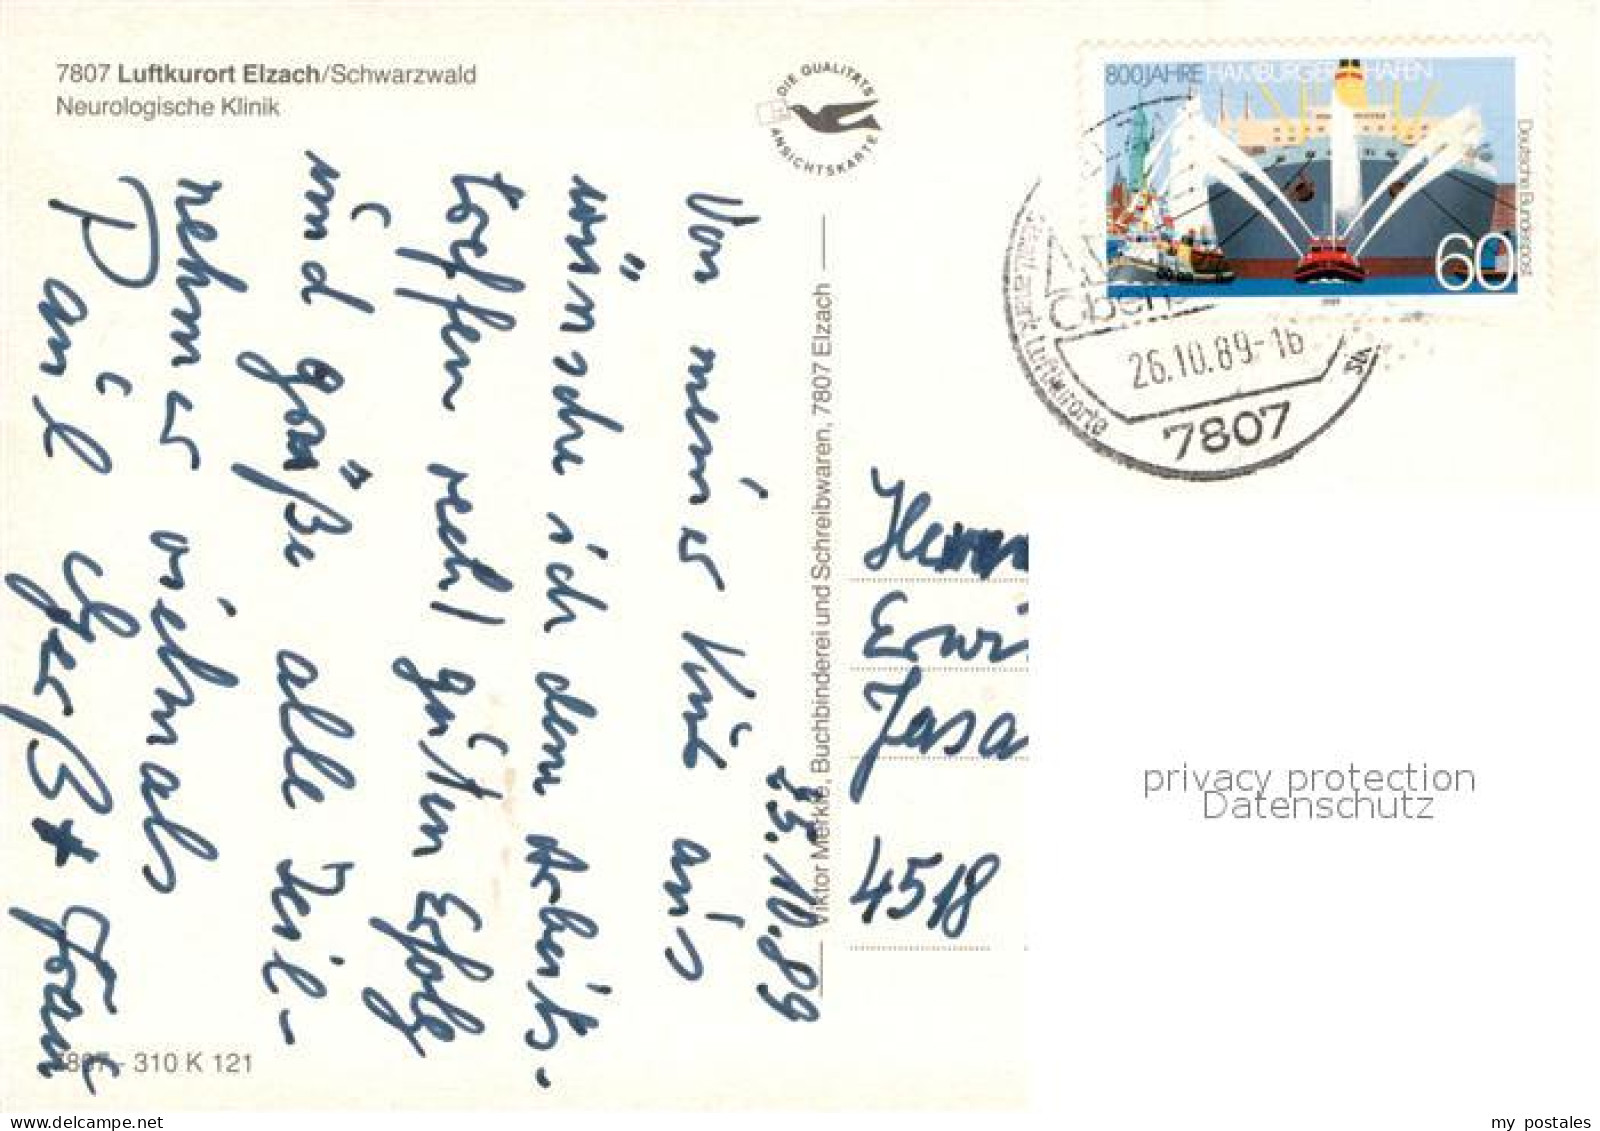 7807 Luftkurort Elzach/Schwarzwald
Neurologische Klinik
DIE QUALITÄTS
ANSICHTSKARTE
800 JAHRE HAMBURGER HAFEN
Deutsche Bundespost
60
1989
26.10.89-16
7807
Luftkurorte
25.10.89
Von meiner Kur aus
wünsche ich dem Arbeits-
treffen recht guten Erfolg
und grüße alle Teil-
nehmer vielmals
Paul & Frau
Viktor Merkle, Buchbinderei und Schreibwaren, 7807 Elzach
Herrn
Erwi
Jasa
4518
7807 - 310 K 121
privacy protection
Datenschutz
my postales